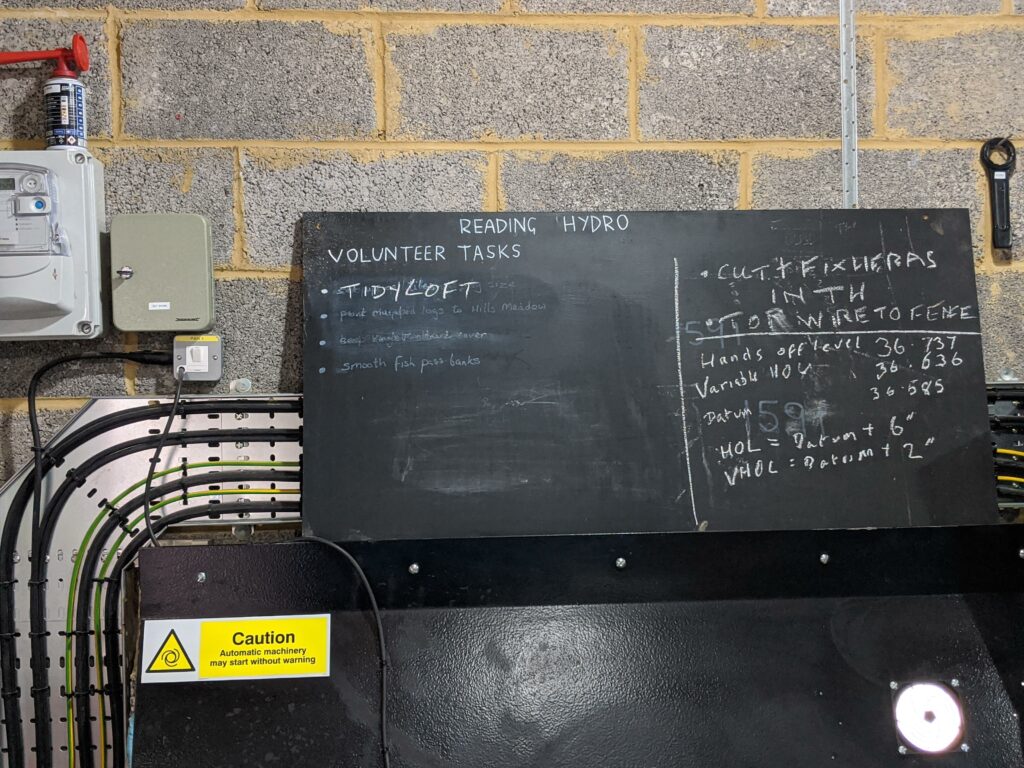 READING HYDRO
VOLUNTEER TASKS
• TIDY LOFT
• paint logs to Hills Meadow
• cover
• smooth fish pass banks
• CUT & FIX HERAS
IN TH
• TOR WIRE TO FENE
Hands off level 36.737
Variable HOL 36.636
Datum 36.585
HOL = Datum + 6"
VHOL = Datum + 2"
Caution
Automatic machinery
may start without warning